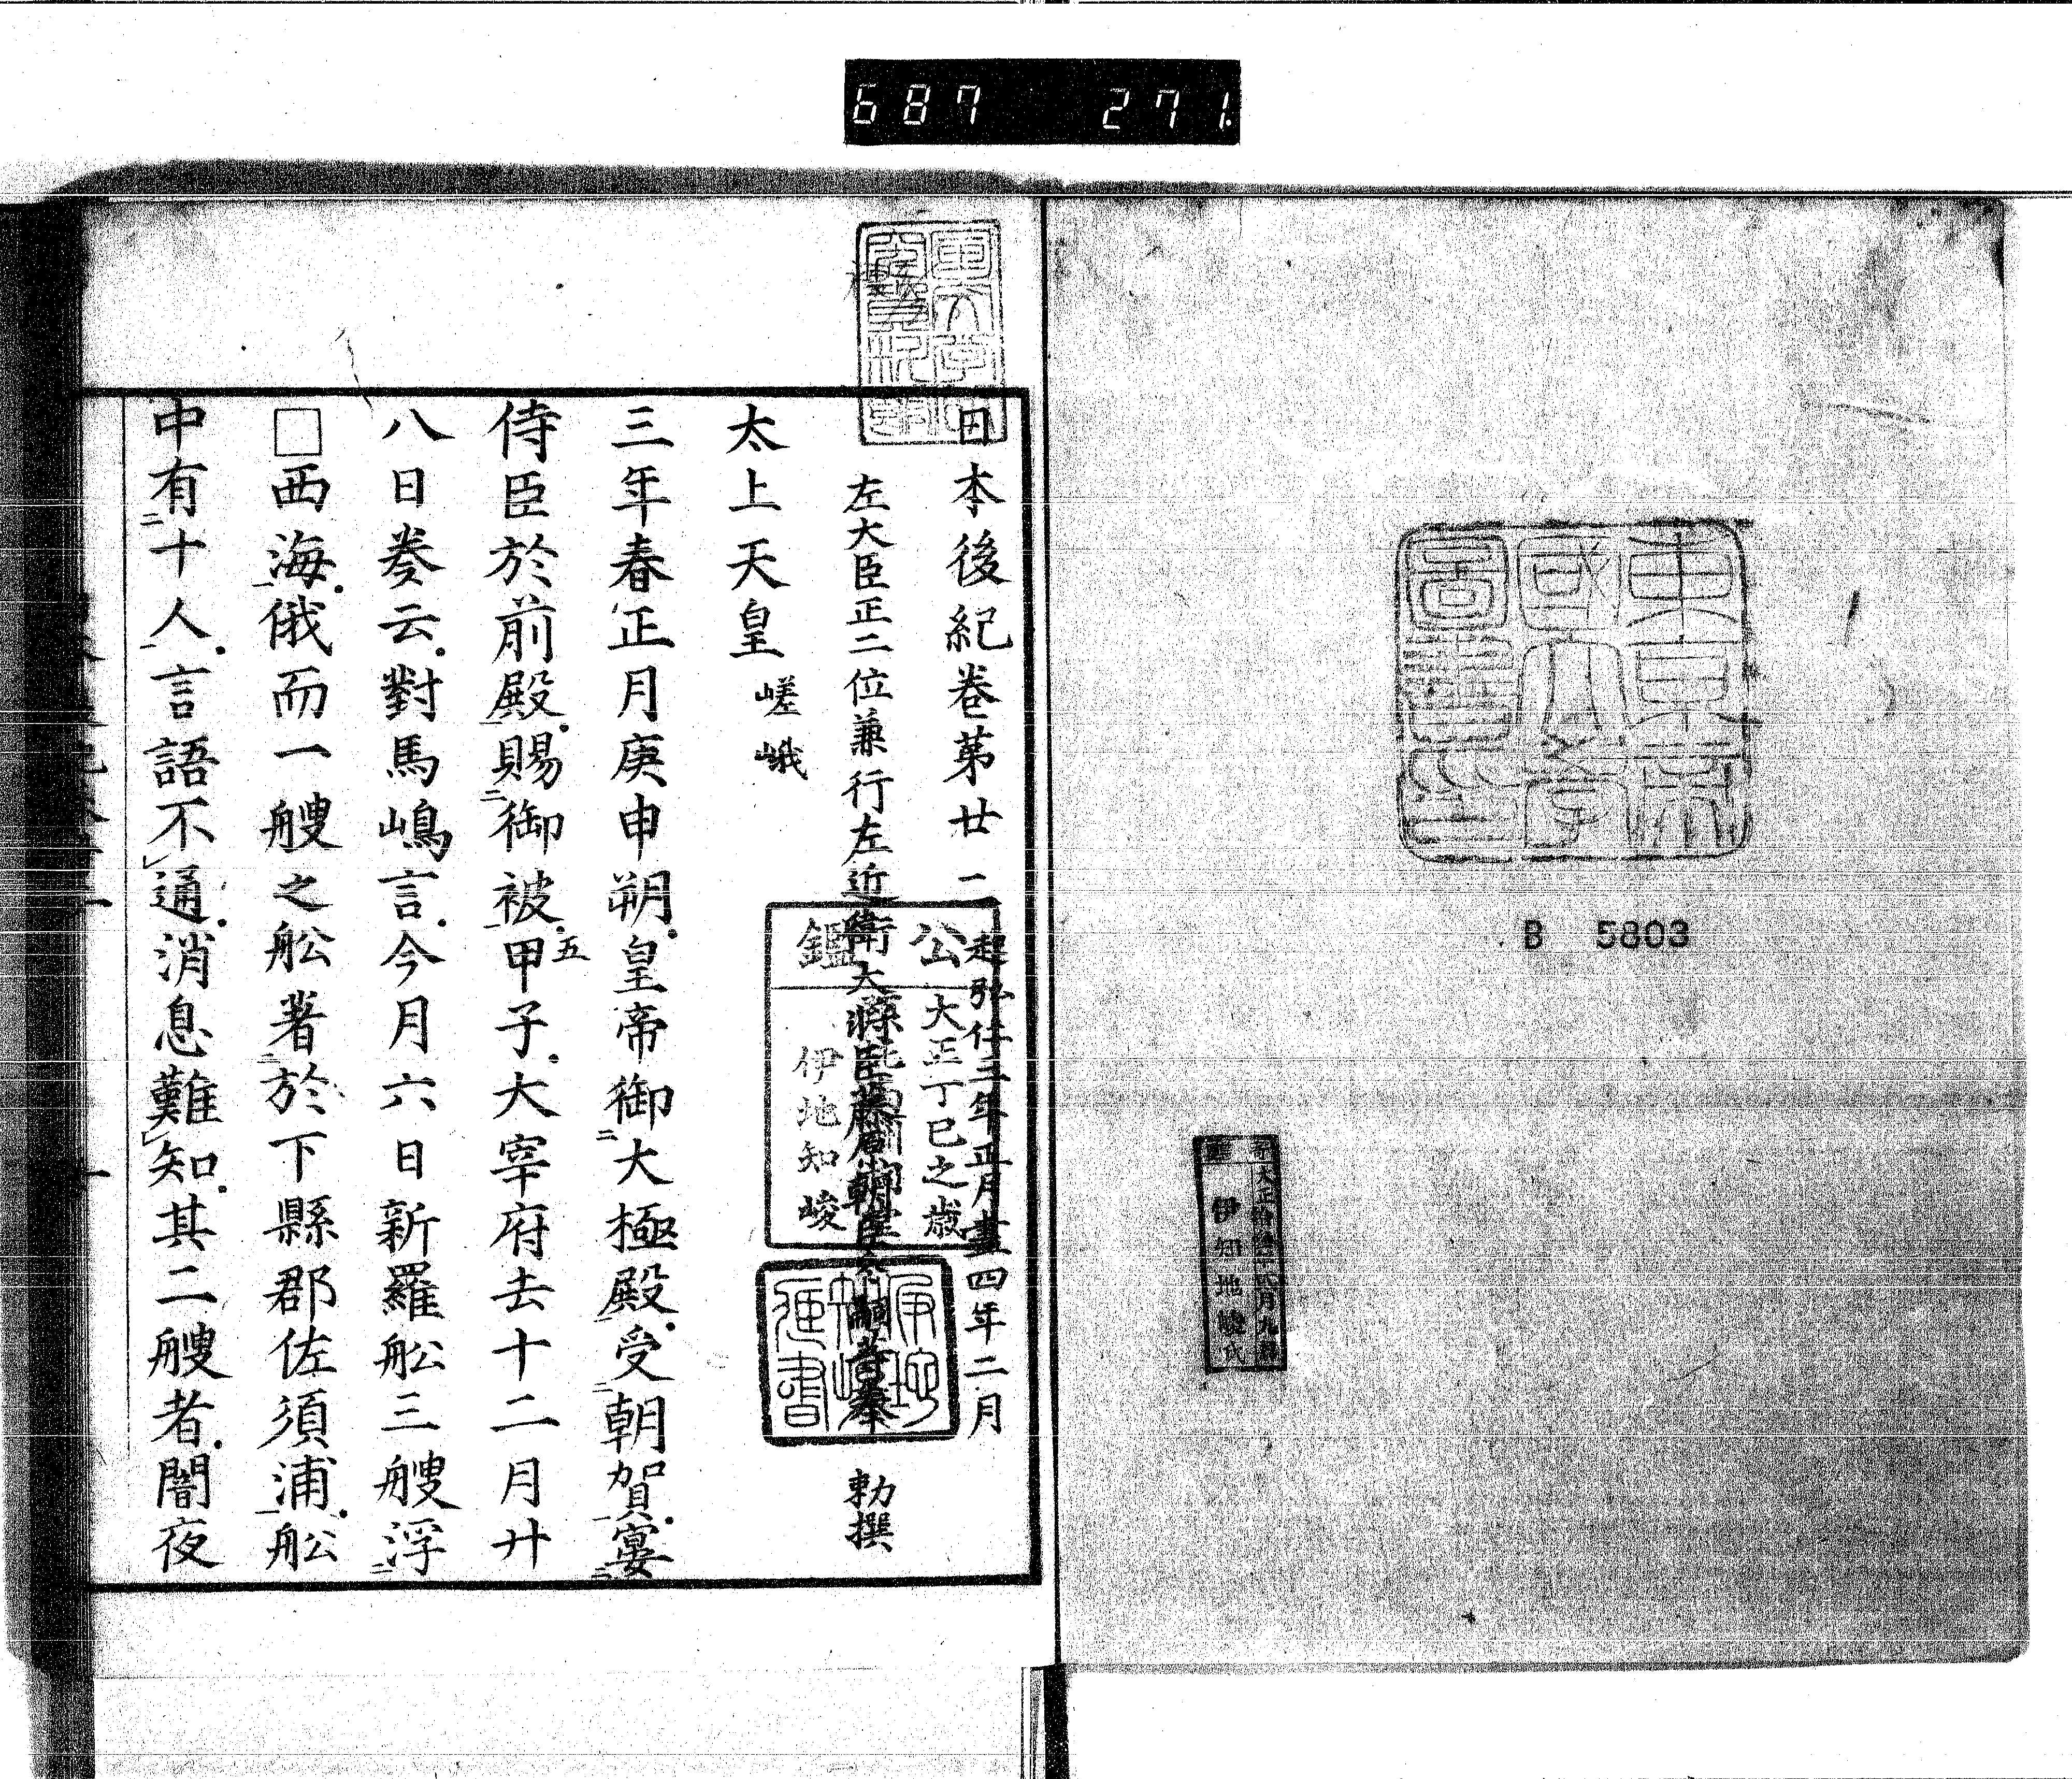 687 271
東京帝國大學圖書印
B 5803
伊知地
日本後紀卷第廿二 起弘仁三年正月盡四年二月
左大臣正二位兼行左近衛大將臣藤原朝臣冬嗣等奉 勅撰
公鑑
大正丁巳之歳
伊地知峻
太上天皇 嵯峨
三年春正月庚申朔皇帝御二大極殿一受二朝賀一宴二
侍臣於前殿一賜二御被一甲子五大宰府去十二月廿
八日奏云對馬嶋言今月六日新羅舩三艘浮二
□西海一俄而一艘之舩著二於下縣郡佐須浦一舩
中有二十人一言語不通消息難知其二艘者闇夜